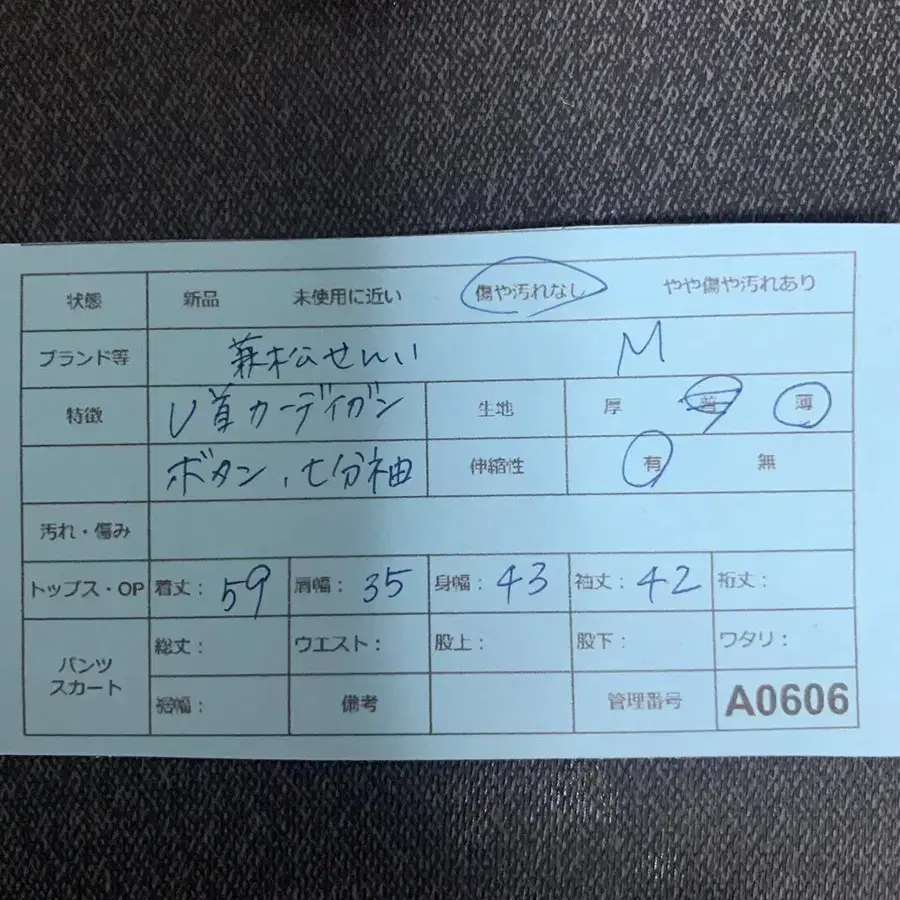 状態 新品 未使用に近い 傷や汚れなし やや傷や汚れあり
ブランド等 兼松せんい M
特徴 V首カーディガン 生地 厚 普 薄
ボタン、七分袖 伸縮性 有 無
汚れ・傷み
トップス・OP 着丈: 59 肩幅: 35 身幅: 43 袖丈: 42 裄丈:
パンツ スカート 総丈: ウエスト: 股上: 股下: ワタリ:
裾幅: 備考 管理番号 A0606